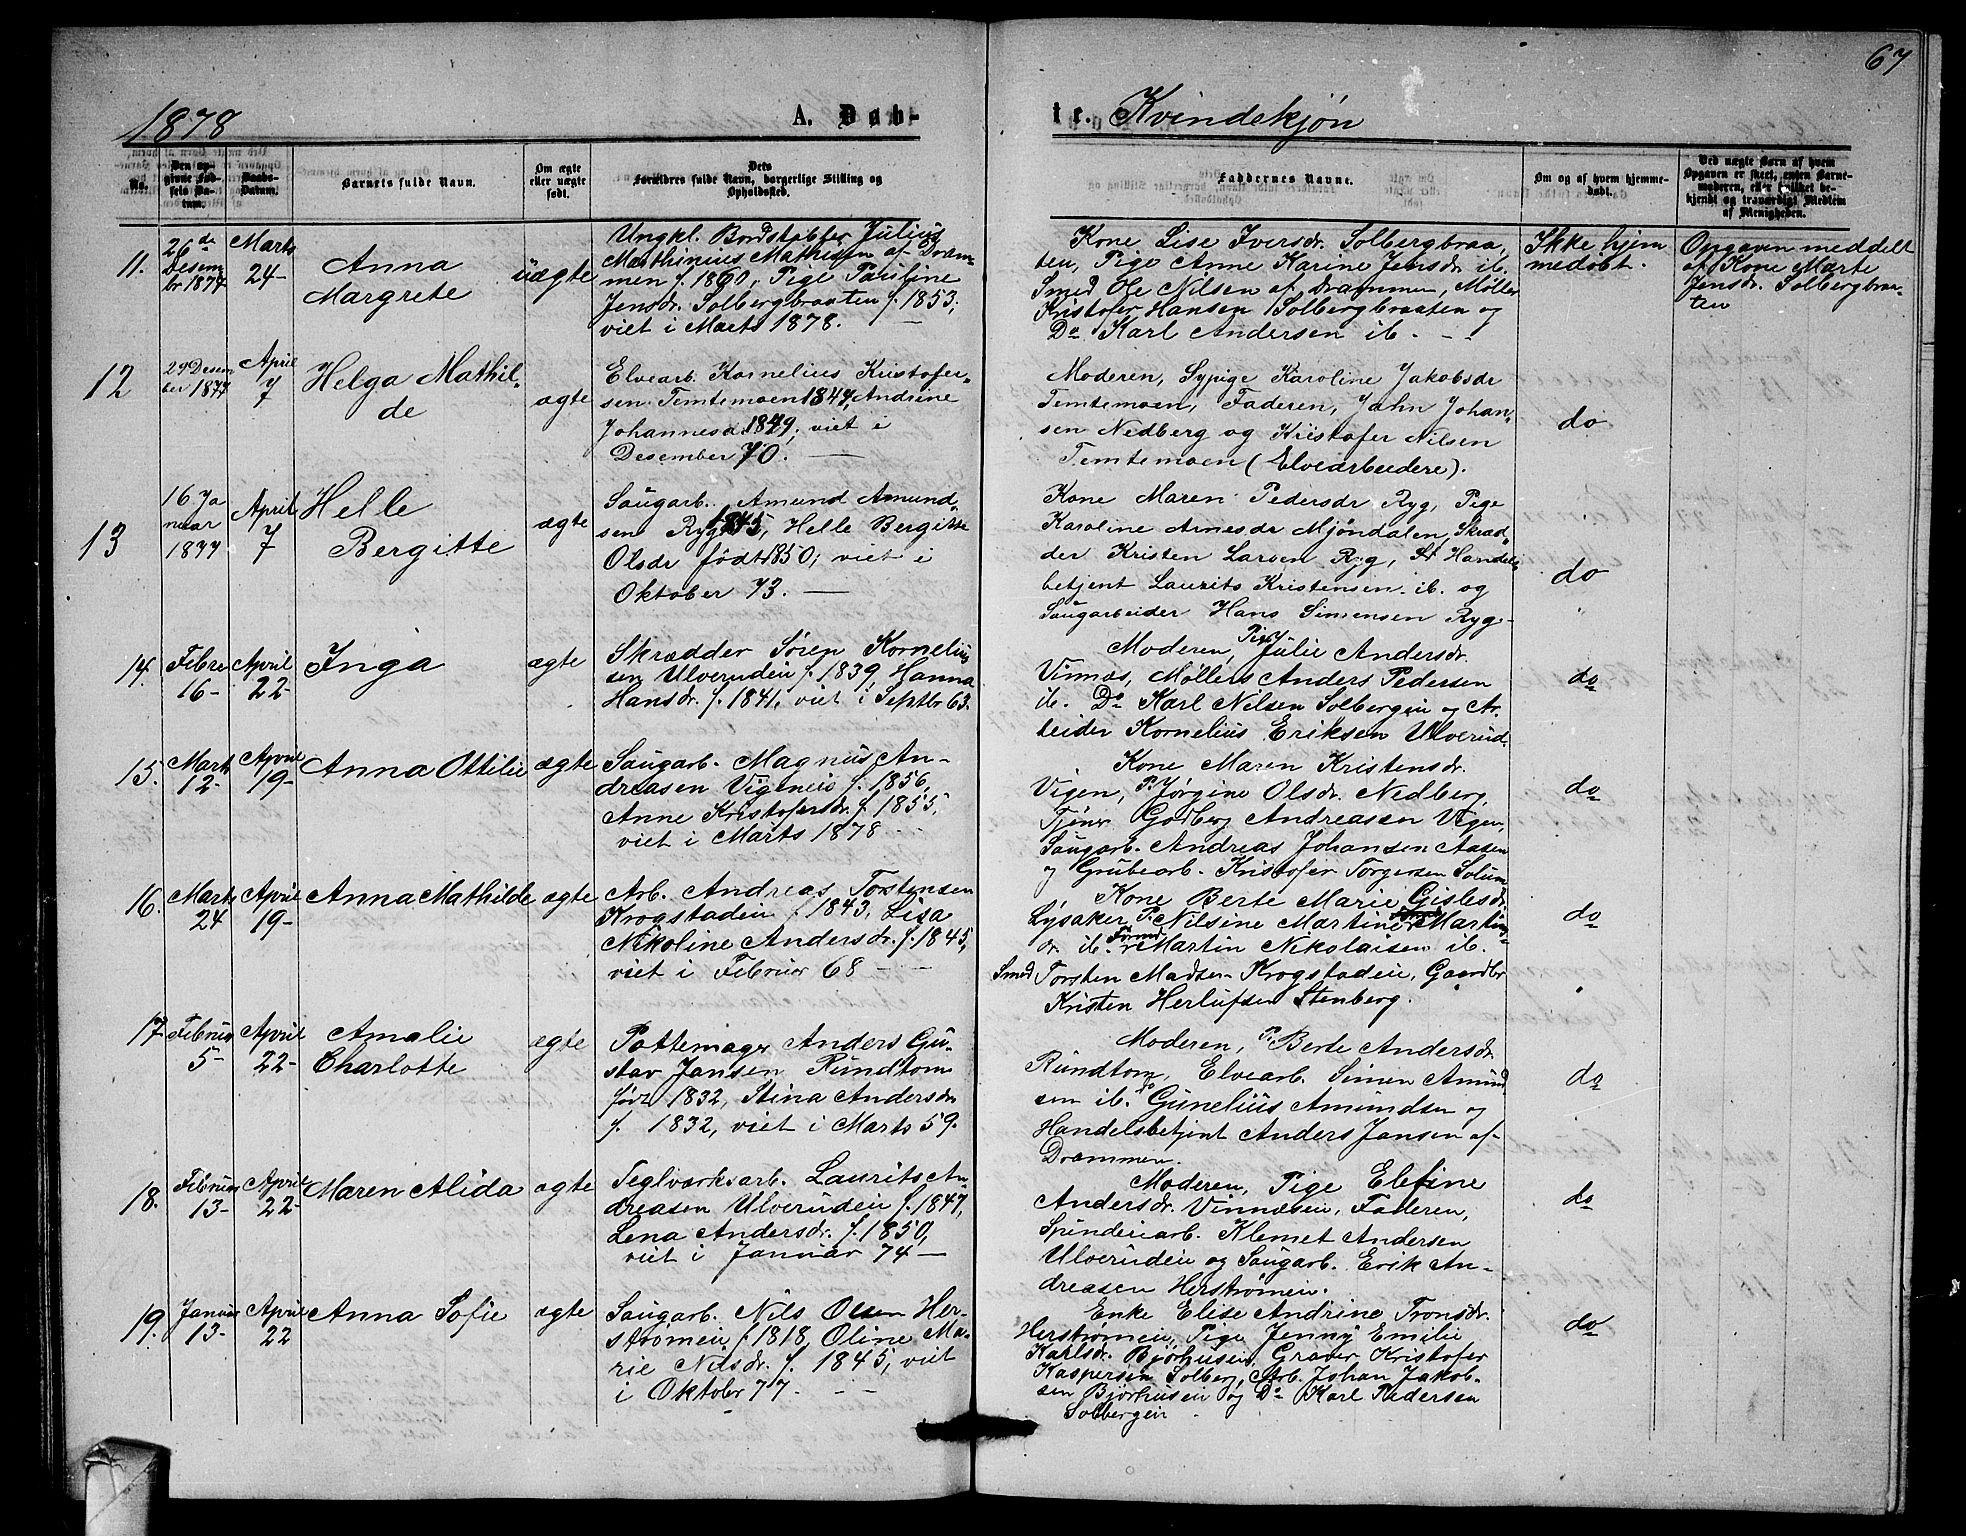 67
1878
A. Døbte. Kvindekjøn
No.
Den opgivne Fødsels Datum.
Daabs-Datum.
Barnets fulde Navn.
Om ægte eller uægte født.
Dets Forældres fulde Navn, borgerlige Stilling og Opholdssted.
Faddernes Navne.
Om og af hvem hjemmedøbt.
Ved uægte Børn af hvem Opgaven er skeet, enten Barnemoderen, eller hvilket bekjendt og troværdigt Medlem af Menigheden.
11.
26de
Desem
br 1877
Marts
24-
Anna
Margrete
uægte
Ungkl. Bordstabler Julius
Mathinius Mathisen af Dram-
men f. 1860, Pige Pauline
Jensdr. Solbergbraaten f. 1853,
viet i Marts 1878.
Kone Lise Iversdr. Solbergbraa-
ten, Pige Anne Karine Jensdr ib.
Smed Ole Nilsen af Drammen, Møller
Kristofer Hansen Solbergbraaten og
Do Karl Andersen ib.
Ikke hjem
medøbt.
Opgaven meddelt
af Kone Marte
Jensdr. Solbergbraa-
ten
12
29 Desem
ber 1877
April
7
Helga Mathil-
de
ægte
Elvearb. Kornelius Kristofer-
sen Temtemoen 1847, Andrine
Johannesd. 1849; viet i
Desember 70.
Moderen, Sypige Karoline Jakobsdr
Temtemoen, Faderen, Jahn Johan-
sen Nedberg og Kristofer Nilsen
Temtemoen (Elvearbeidere).
do
13
16 Ja
nuar
1877
April
7
Helle
Bergitte
ægte
Saugarb. Amund Amund-
sen Ryg 1845, Helle Bergitte
Olsdr født 1850; viet i
Oktober 73.
Kone Maren Pedersdr Ryg, Pige
Karoline Arnesdr Mjøndalen, Skræd-
der Kristen Larsen Ryg, Handels-
betjent Laurits Kristensen ib. og
Saugarbeider Hans Simensen Ryg-
do
14.
Febru
16-
April
22-
Inga
ægte
Skrædder Søren Kornelius
sen Ulverudeie f. 1839, Hanna
Hansdr. f. 1841, viet i Septbr 63.
Moderen, Pige Julie Andersdr.
Vinnæs, Møller Anders Pedersen
ib. Do Karl Nilsen Solbergeie og Ar-
beider Kornelius Eriksen Ulverud.
do
15.
Marts
12-
April
19-
Anna Ottilie
ægte
Saugarb. Magnus An-
dreasen Vigeneie f. 1856,
Anne Kristofersdr. f. 1855,
viet i Marts 1878
Kone Maren Kristensdr.
Vigen, P. Jørgine Olsdr. Nedberg,
Tjener Godberg Andreasen Vigen,
Saugarb. Andreas Johansen Aasen
og Grubearb. Kristofer Torgersen Solum
do
16.
Marts
24
April
19-
Anna Mathilde
ægte
Arb. Andreas Torstensen
Krogstadeie f. 1843, Lisa
Nikoline Andersdr. f. 1845,
viet i Februar 68
Kone Berte Marie Gislesdr.
Lysaker, P. Nilsine Martine Martins-
dr. ib. Martin Nikolaisen ib.
Smed Torsten Madsen Krogstadeie, Gaardbr
Kristen Herlufsen Stenberg.
do
17
Februar
5-
April
22-
Amalie
Charlotte
ægte
Pottemager Anders Gu-
stav Jansen Rundtom
født 1832, Stina Andersdr
f. 1832, viet i Marts 59.
Moderen, P. Berte Andersdr.
Rundtom, Elvearb. Simen Amund
sen ib. Do Gunelius Amundsen og
Handelsbetjent Anders Jansen af
Drammen.
do
18.
Februar
13-
April
22-
Maren Alida
ægte
Teglværksarb. Laurits An-
dreasen Ulverudeie f. 1847,
Lena Andersdr. f. 1850,
viet i Januar 74
Moderen, Pige Elefine
Andersdr. Vinnæseie, Faderen,
Spinderiarb. Klemet Andersen
Ulverudeie og Saugarb. Erik An-
dreasen Herstrømeie.
do
19.
Januar
13-
April
22
Anna Sofie
ægte
Saugarb. Nils Olsen Her-
strømeie f. 1818, Oline Ma-
rie Nilsdr. f. 1845, viet
i Oktober 77.
Enke Elise Andrine Tronsdr.
Herstrømeie, Pige Jenny Emilie
Karlsdr. Bjørhuseie, Graver Kristofer
Kaspersen Solberg, Arb. Johan Jakob-
sen Bjørhuseie og Do Karl Pedersen
Solbergeie
do